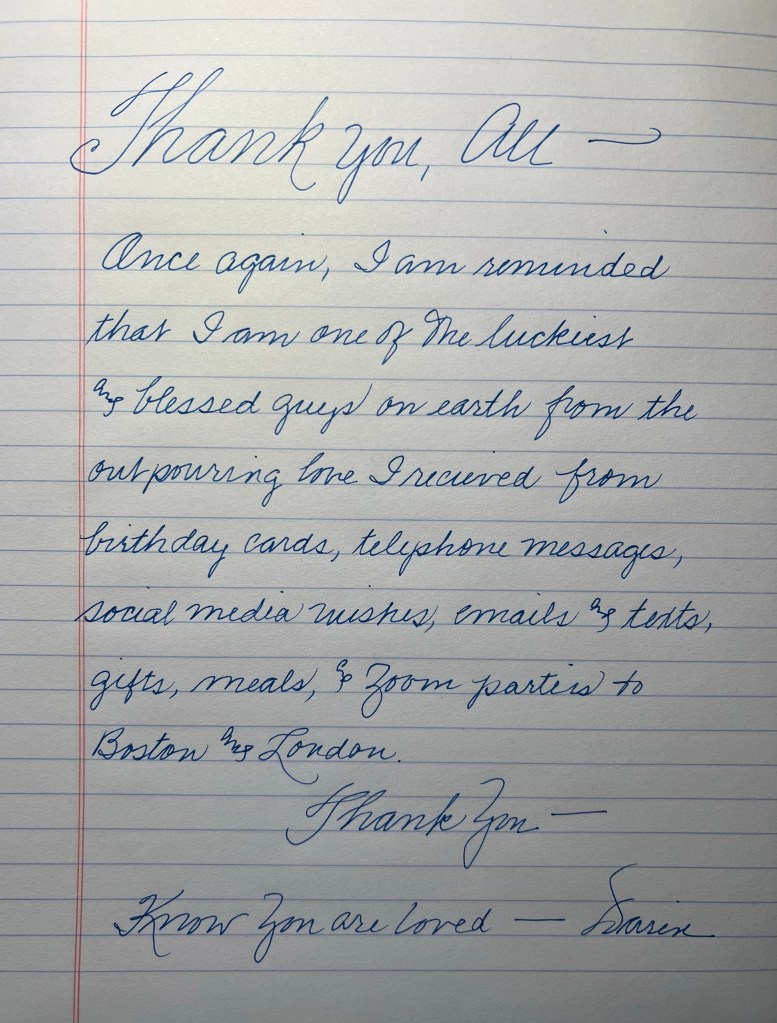 Thank you, All —
Once again, I am reminded
that I am one of the luckiest
and blessed guys on earth from the
outpouring love I recieved from
birthday cards, telephone messages,
social media wishes, emails and texts,
gifts, meals, & Zoom parties to
Boston and London.
Thank You —
Know You are loved — Darin